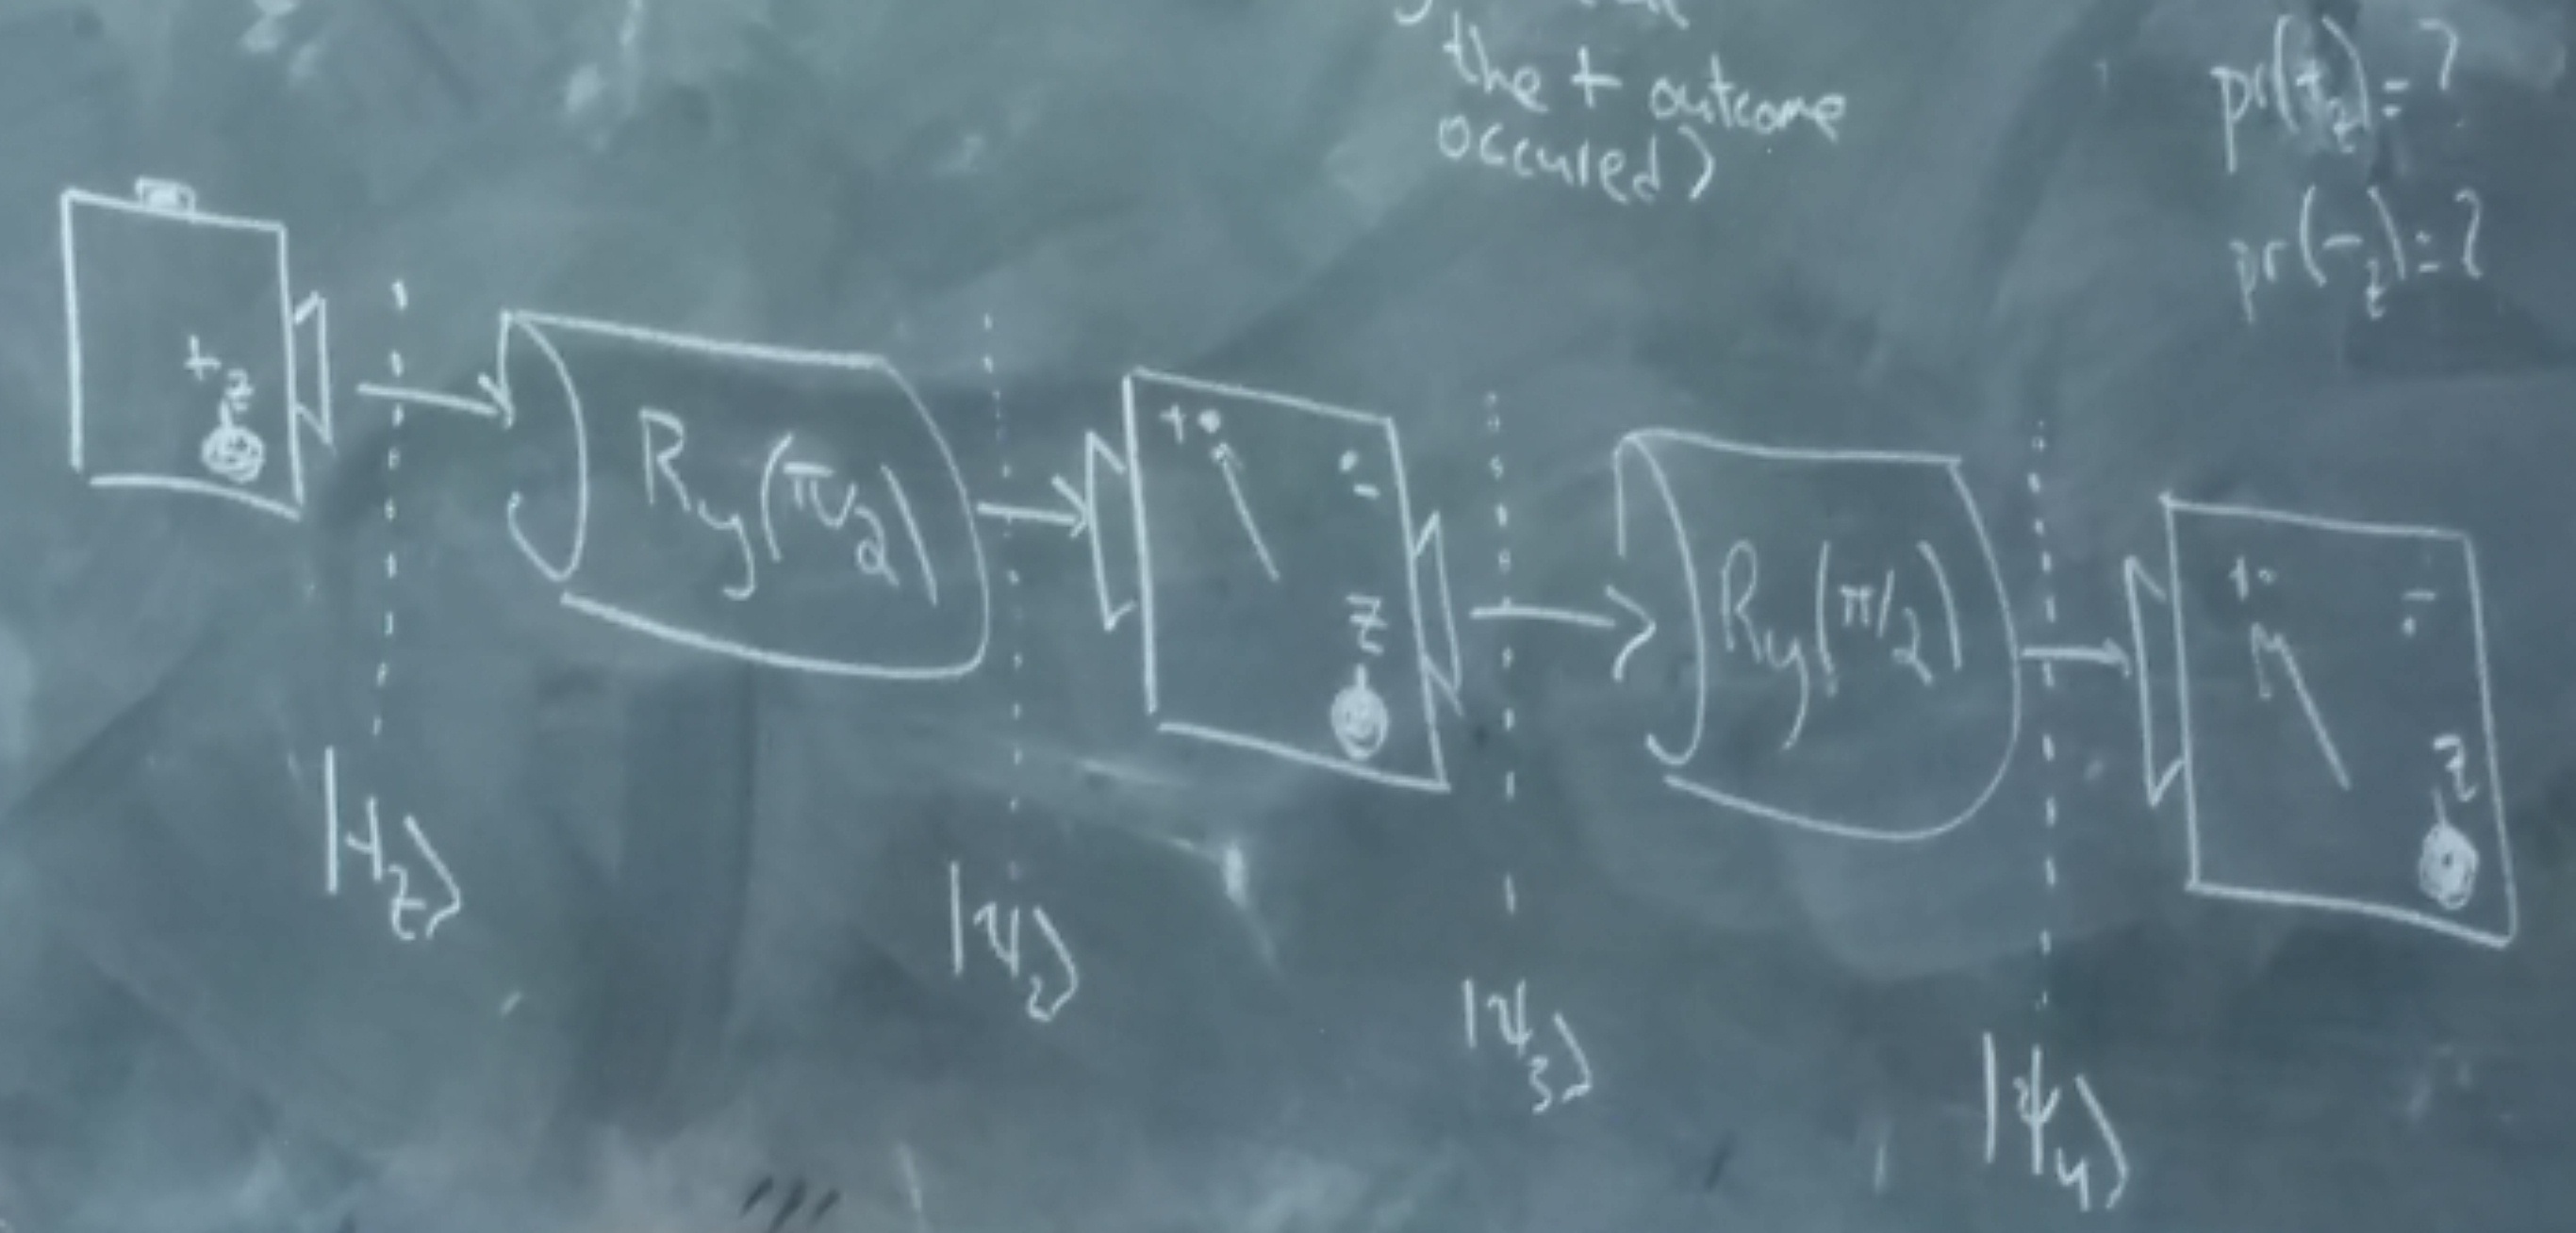 the + outcome
occured)
pr(+z)=?
pr(-z)=?
+z
Ry(π/2)
+
-
z
Ry(π/2)
+
-
z
|+z⟩
|ψ2⟩
|ψ3⟩
|ψ4⟩